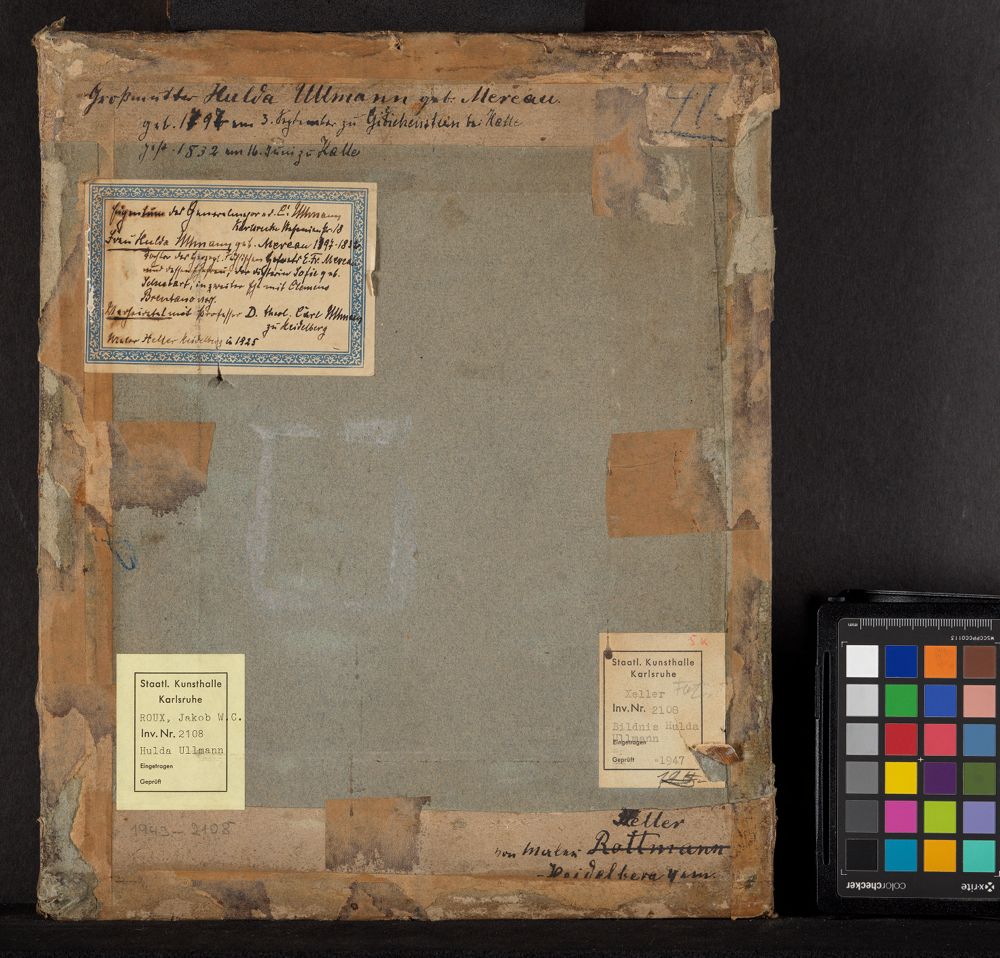 Großmutter Hulda Ullmann geb. Mereau.
41.
geb. 1797 am 3. September zu Giebichenstein bei Halle
gest. 1832 am 16. Juni zu Halle
Eigentum des Generalmajor a.d. C. Ullmann
Karlsruhe Stefanienstr. 18
Frau Hulda Ullmann geb. Mereau 1797-1832
Tochter des Herzogl. Sächsischen E. Fr. Mereau
und dessen Ehefrau, der Dichterin Sofie geb.
Schubart, in zweiter Ehe mit Clemens
Brentano
Verheiratet mit Professor D. theol. Carl Ullmann
zu Heidelberg
Heidelberg 1825
Staatl. Kunsthalle
Karlsruhe
ROUX, Jakob W.C.
Inv. Nr. 2108
Hulda Ullmann
Eingetragen
Geprüft
5 K
Staatl. Kunsthalle
Karlsruhe
Xeller
Inv. Nr. 2108
Bildnis Hulda
Ullmann
Eingetragen
Geprüft 1947
1943-2108
Xeller
von Maler Rottmann
Heidelberg gem.
mm
MSCCPPCC0113
x-rite
colorchecker